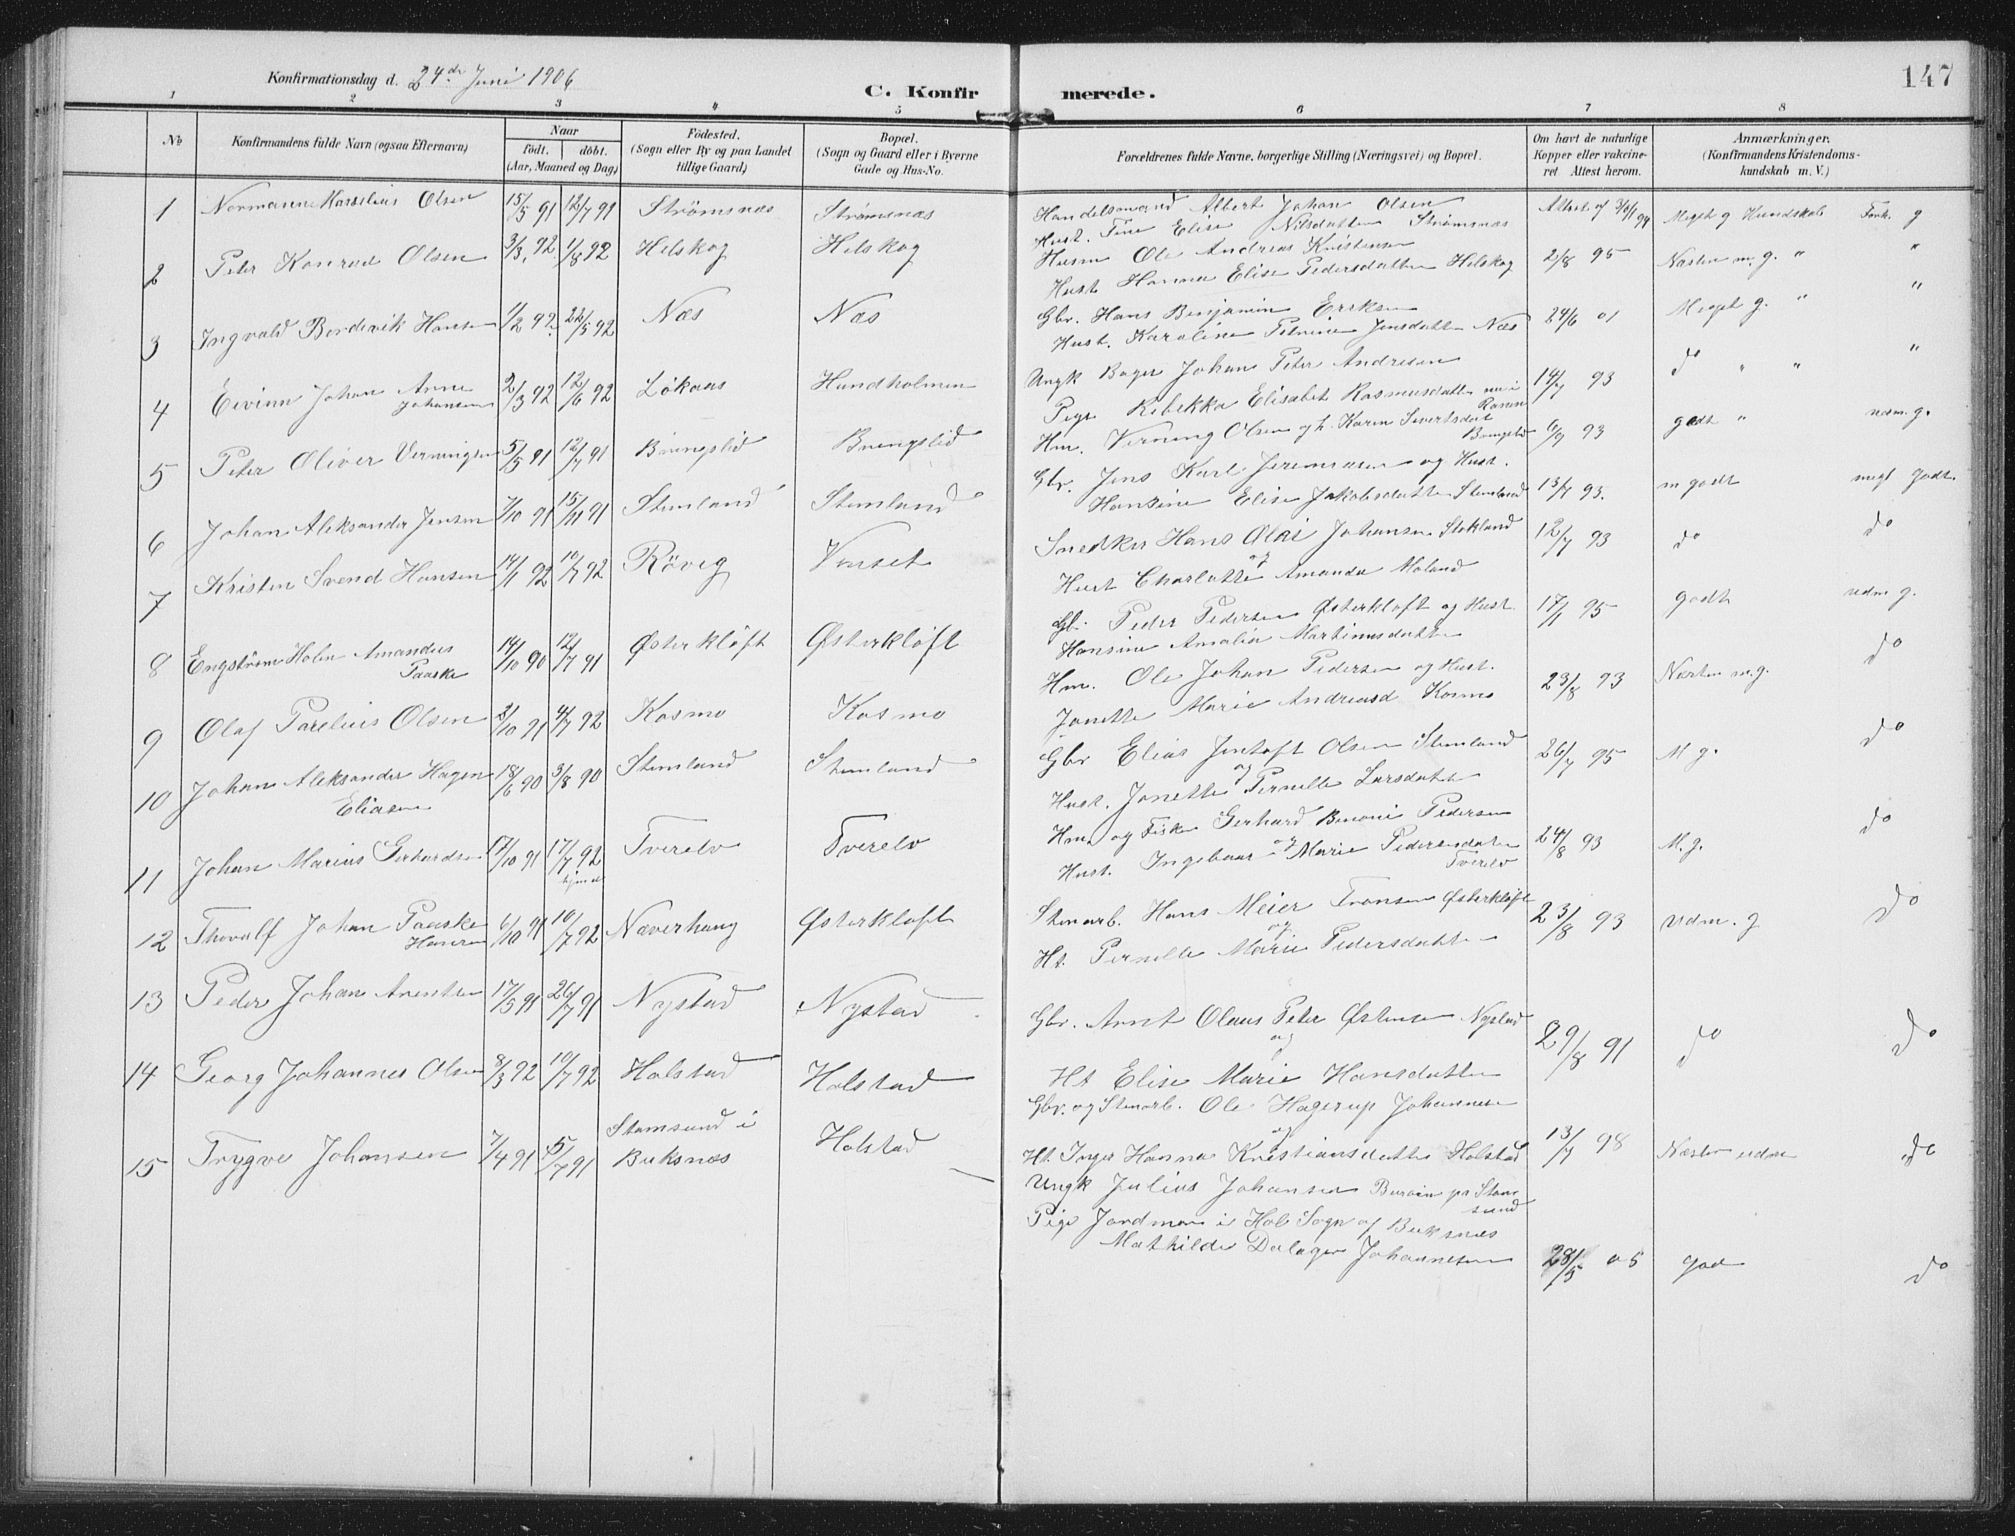 147
Konfirmationsdag d. 24de Juni 1906
C. Konfirmerede.
1 2 3 4 5 6 7 8
No
Konfirmandens fulde Navn (ogsaa Efternavn)
Naar
født. døbt.
(Aar, Maaned og Dag)
Födested.
(Sogn eller By og paa Landet
tillige Gaard)
Bopæl.
(Sogn og Gaard eller i Byerne
Gade og Hus-No.
Forældrenes fulde Navne, borgerlige Stilling (Næringsvei) og Bopæl.
Om havt de naturlige
Kopper eller vakcine-
ret Attest herom.
Anmærkninger.
(Konfirmandens Kristendoms-
kundskab m. V.)
1 Normann Olsen 15/5 91 12/7 91 Strømsnæs Strømsnæs
Handelsmand Albert Johan Olsen
Hust. Elise Nilsdatter Strømsnæs
Meget g Kundskab Forh. g
2 Peter Konrad Olsen 3/3 92 1/8 92 Helskog Helskog
Husm Ole Andreas Kristensen
Hust Hanna Elise Pedersdatter Helskog
2/8 95 Næsten m. g. " "
3 Ingvald Hansen 1/2 92 22/5 92 Næs Næs
Gbr. Hans Benjamin Eriksen
Hust. Karoline Petrine Jensdatter Næs
24/6 01 Meget g. " "
4 Eivinn Johan Arne
Johansen 2/3 92 12/6 92 Løkaas Hundholmen
Ungk Bager Johan Peter Andresen
Pige Rebekka Elisabet Rasmusdatter nu i
Ranen
14/7 93 do " " "
5 Peter Oliver Verningsen 5/5 91 12/7 91 Bringslid Bringslid
Hm. Verning Olsen og h. Karen Sivertsdat
Bringslid
6/9 93 godt " udm. g.
6 Johan Aleksander Jensen 7/10 91 15/11 91 Stemland Stemland
Gbr. Jens Karl Jeremiasen og Hust.
Hansine Elise Jakobsdatter Stemland
13/7 93. m godt megt godt.
7 Kristen Svend Hansen 14/1 92 10/7 92 Rövig Venset
Snedker Hans Olai Johansen Stokland
og
Hust Charlotte Amanda Moland
12/7 93 do do
8 Engstrøm Holm Amandus
Paaske 14/10 90 12/7 91 Østerkløft Østerkløft
Gb. Peder Pedersen Østerkløft og Hust
Hansine Amalia Martinusdatter
17/1 95 godt udm g.
9 Olaf Parelius Olsen 2/10 91 4/7 92 Kosmo Kosmo
Hm. Ole Johan Pedersen og Hust.
Jonette Marie Andreasd Kosmo
23/8 93 Næsten m.g. do
10 Johan Aleksander Hagen
Eliasen 18/6 90 3/8 90 Stemland Stemland
Gbr Elias Jentoft Olsen Stemland
og
Hust. Jonette Pernille Larsdatt
26/7 95 M g. do
11 Johan Marius Gerhardsen 17/10 91 17/7 92
hjemd Tverelv Tverelv
Hm. og Fisker Gerhard Benoni Pedersen
og
Hust. Ingebaar Marie Pedersdatter
Tverelv
24/8 93 M. g. do
12 Thovalf Johan Paaske
Hansen 6/10 91 10/7 92 Næverhaug Østerkløft
Stenarb. Hans Meier Fransen Østerkløft
og
Ht. Pernille Marie Pedersdatter
23/8 93 udm. g do
13 Peder Johan Arentsen 17/5 91 26/7 91 Nystad Nystad
Gbr. Arnt Olaus Peter Østensen Nystad
og
Ht Elise Marie Hansdatter
29/8 91 do do
14 Georg Johannes Olsen 8/3 92 10/7 92 Holstad Holstad
Gbr. og Stenarb. Ole Hagerup Johannesen
og
Ht. Inger Hanna Kristiansdatter Holstad
13/7 98 Næsten udm do
15 Trygve Johansen 7/4 91 5/7 91 Stamsund i
Buksnæs Holstad
Ungk Julius Johansen pr Stam
sund
Pige Jordmor i Hol Sogn af Buksnæs
Mathilde Dalager Johannesen
28/5 05 god do